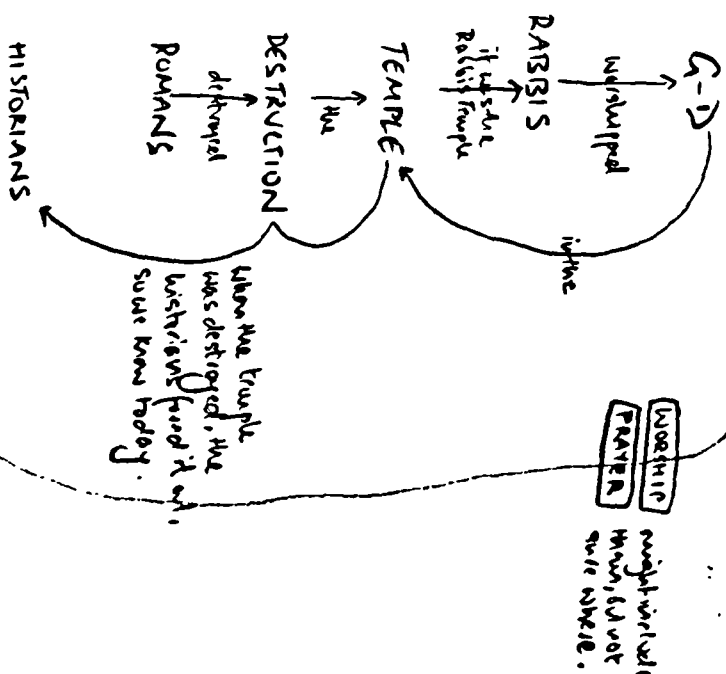 G-D
worshipped
RABBIS
it was the
Rabbis Temple
TEMPLE
the
DESTRUCTION
destroyed
ROMANS
HISTORIANS
in the
when the temple
was destroyed, the
historians found it out,
so we know today.
WORSHIP
PRAYER
might include
them, but not
sure where.